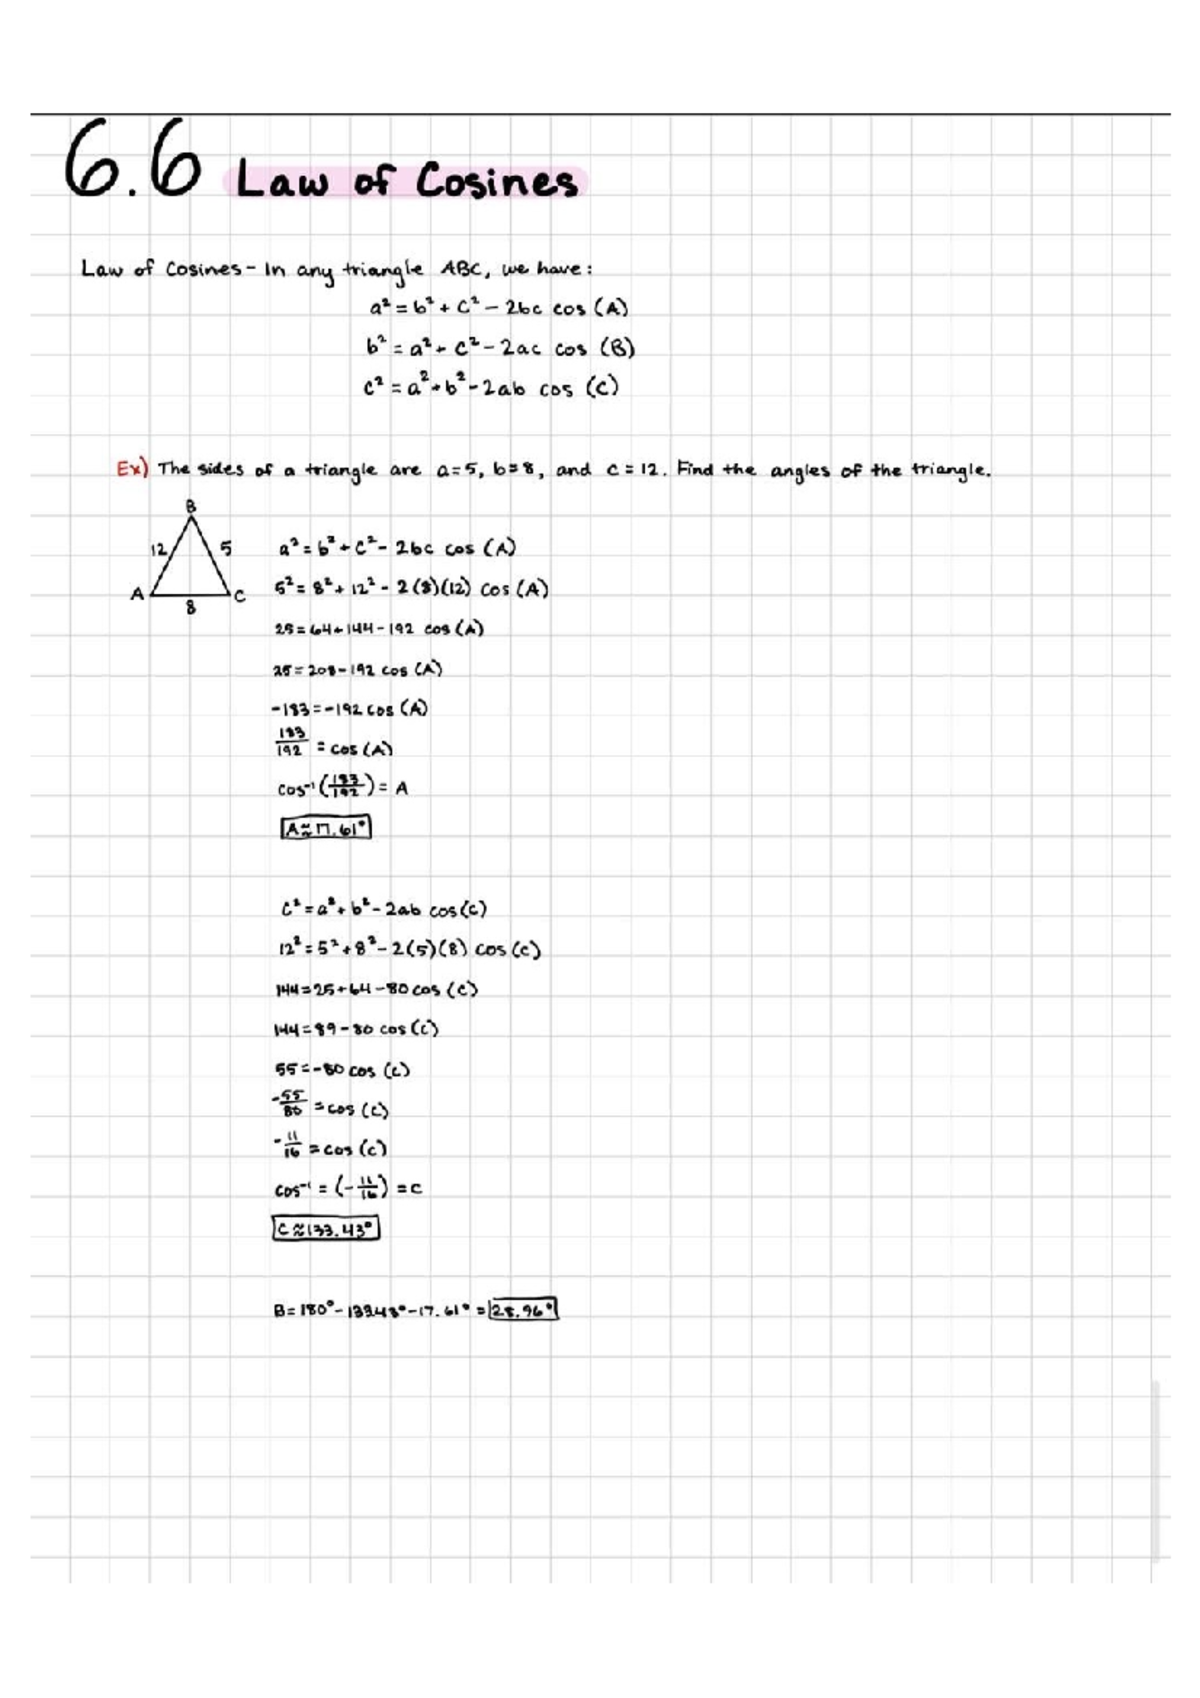 6.6 Law of Cosines
Law of Cosines - In any triangle ABC, we have:
a² = b² + c² - 2bc cos (A)
b² = a² + c² - 2ac cos (B)
c² = a² + b² - 2ab cos (C)
Ex) The sides of a triangle are a = 5, b = 8, and c = 12. Find the angles of the triangle.
B
12
5
A
C
8
a² = b² + c² - 2bc cos (A)
5² = 8² + 12² - 2(8)(12) cos (A)
25 = 64 + 144 - 192 cos (A)
25 = 208 - 192 cos (A)
-183 = -192 cos (A)
183/192 = cos (A)
cos⁻¹ (183/192) = A
A ≈ 17.61°
c² = a² + b² - 2ab cos (C)
12² = 5² + 8² - 2(5)(8) cos (C)
144 = 25 + 64 - 80 cos (C)
144 = 89 - 80 cos (C)
55 = -80 cos (C)
-55/80 = cos (C)
-11/16 = cos (C)
cos⁻¹ = (-11/16) = C
C ≈ 133.43°
B = 180° - 133.43° - 17.61° = 28.96°